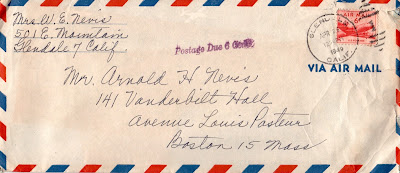 Mrs. W. E. Nevis
501 E. Mountain
Glendale 7 Calif.
Postage Due 6 Cents
AIR MAIL
VIA AIR MAIL
Mr. Arnold H Nevis
141 Vanderbilt Hall
Avenue Louis Pasteur
Boston 15 Mass